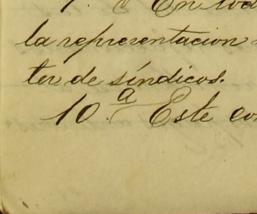 En tod
la representacion
ter de síndicos.
10.ª Este co